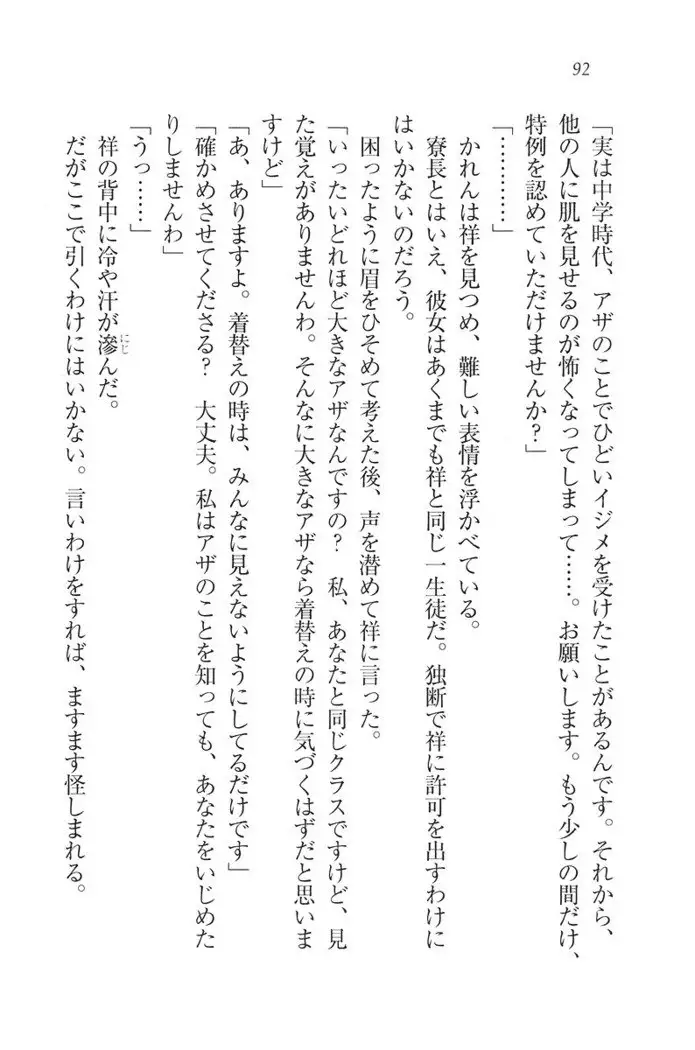 92
「実は中学時代、アザのことでひどいイジメを受けたことがあるんです。それから、
他の人に肌を見せるのが怖くなってしまって……。お願いします。もう少しの間だけ、
特例を認めていただけませんか？」
「…………」
かれんは祥を見つめ、難しい表情を浮かべている。
寮長とはいえ、彼女はあくまでも祥と同じ一生徒だ。独断で祥に許可を出すわけに
はいかないのだろう。
困ったように眉をひそめて考えた後、声を潜めて祥に言った。
「いったいどれほど大きなアザなんですの？　私、あなたと同じクラスですけど、見
た覚えがありませんわ。そんなに大きなアザなら着替えの時に気づくはずだと思いま
すけど」
「あ、ありますよ。着替えの時は、みんなに見えないようにしてるだけです」
「確かめさせてくださる？　大丈夫。私はアザのことを知っても、あなたをいじめた
りしませんわ」
「うっ……」
祥の背中に冷や汗が滲んだ。
にじ
だがここで引くわけにはいかない。言いわけをすれば、ますます怪しまれる。